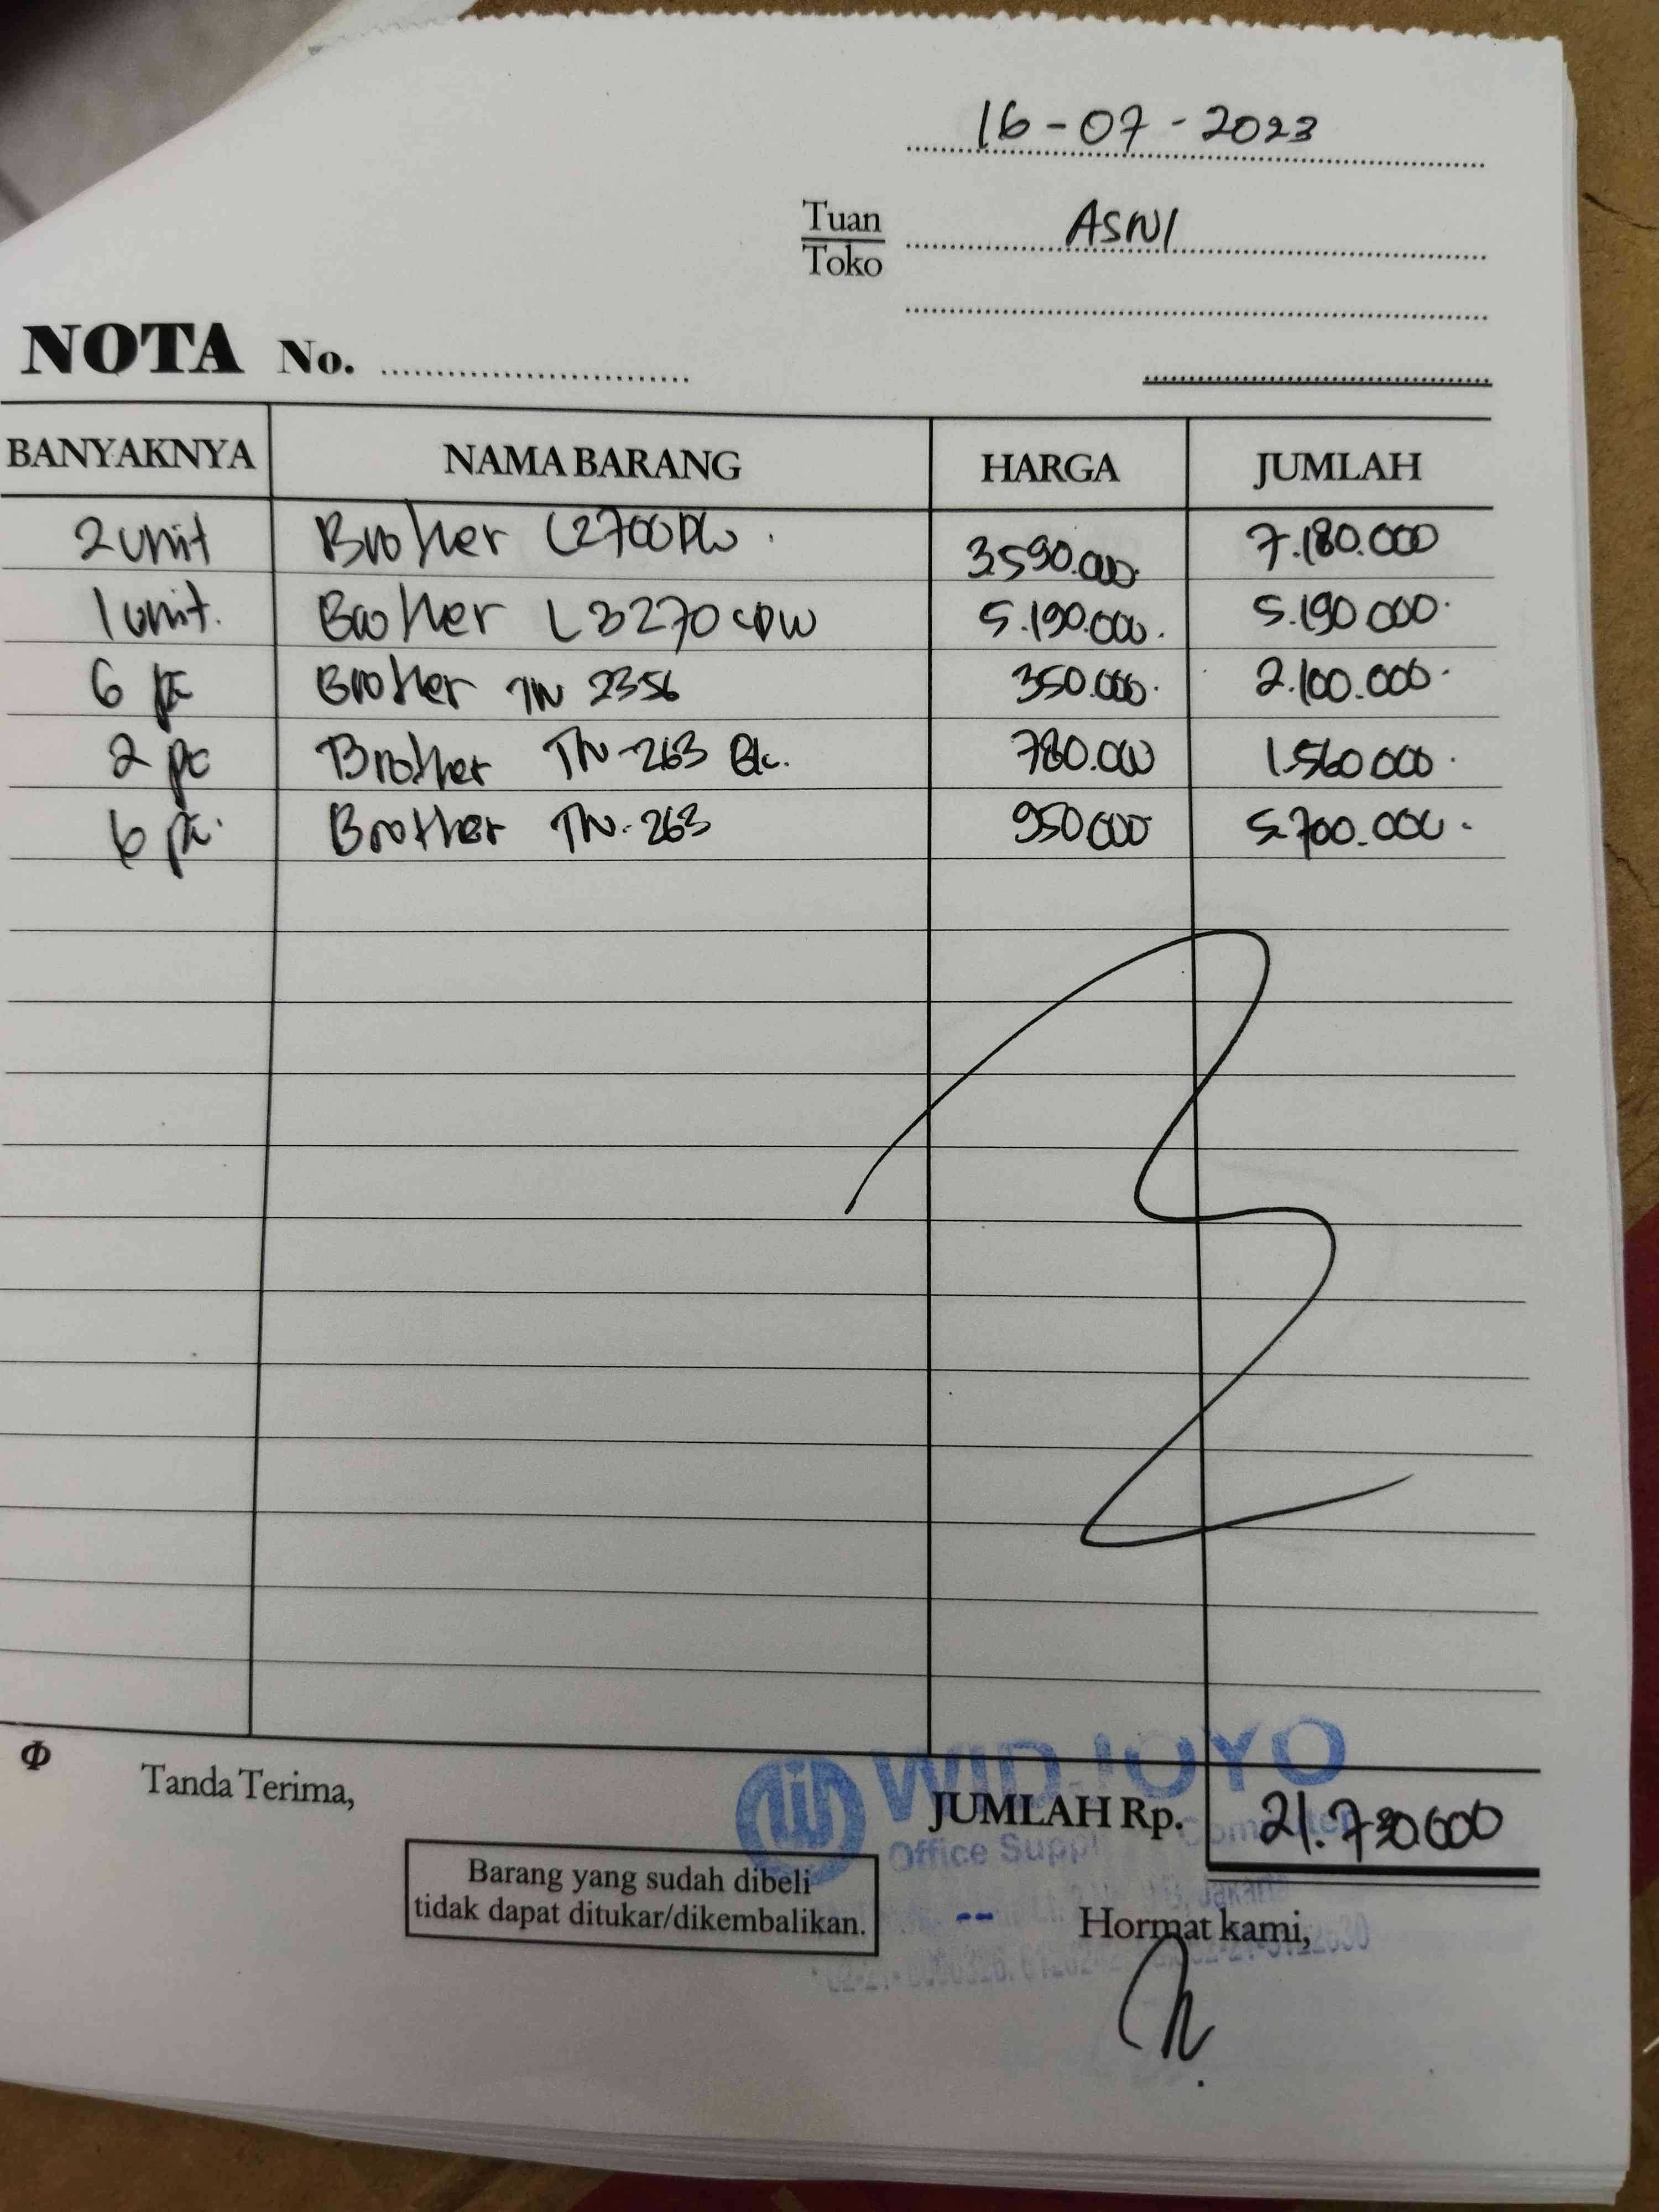 16-07-2023
Tuan
Toko
ASNI
NOTA No.
BANYAKNYA NAMA BARANG HARGA JUMLAH
2 unit Brother L2700DW. 3.590.000. 7.180.000
1 unit. Brother L3270CDW 5.190.000. 5.190.000.
6 pc Brother TN 2356 350.000. 2.100.000.
2 pc Brother TN-263 Bk. 780.000 1.560.000.
6 pc. Brother TN-263 950.000 5.700.000.
WIDJOYO
Tanda Terima,
JUMLAH Rp. 21.730.000
Office Suppl Computer
Barang yang sudah dibeli
tidak dapat ditukar/dikembalikan.
Jakarta
Hormat kami,